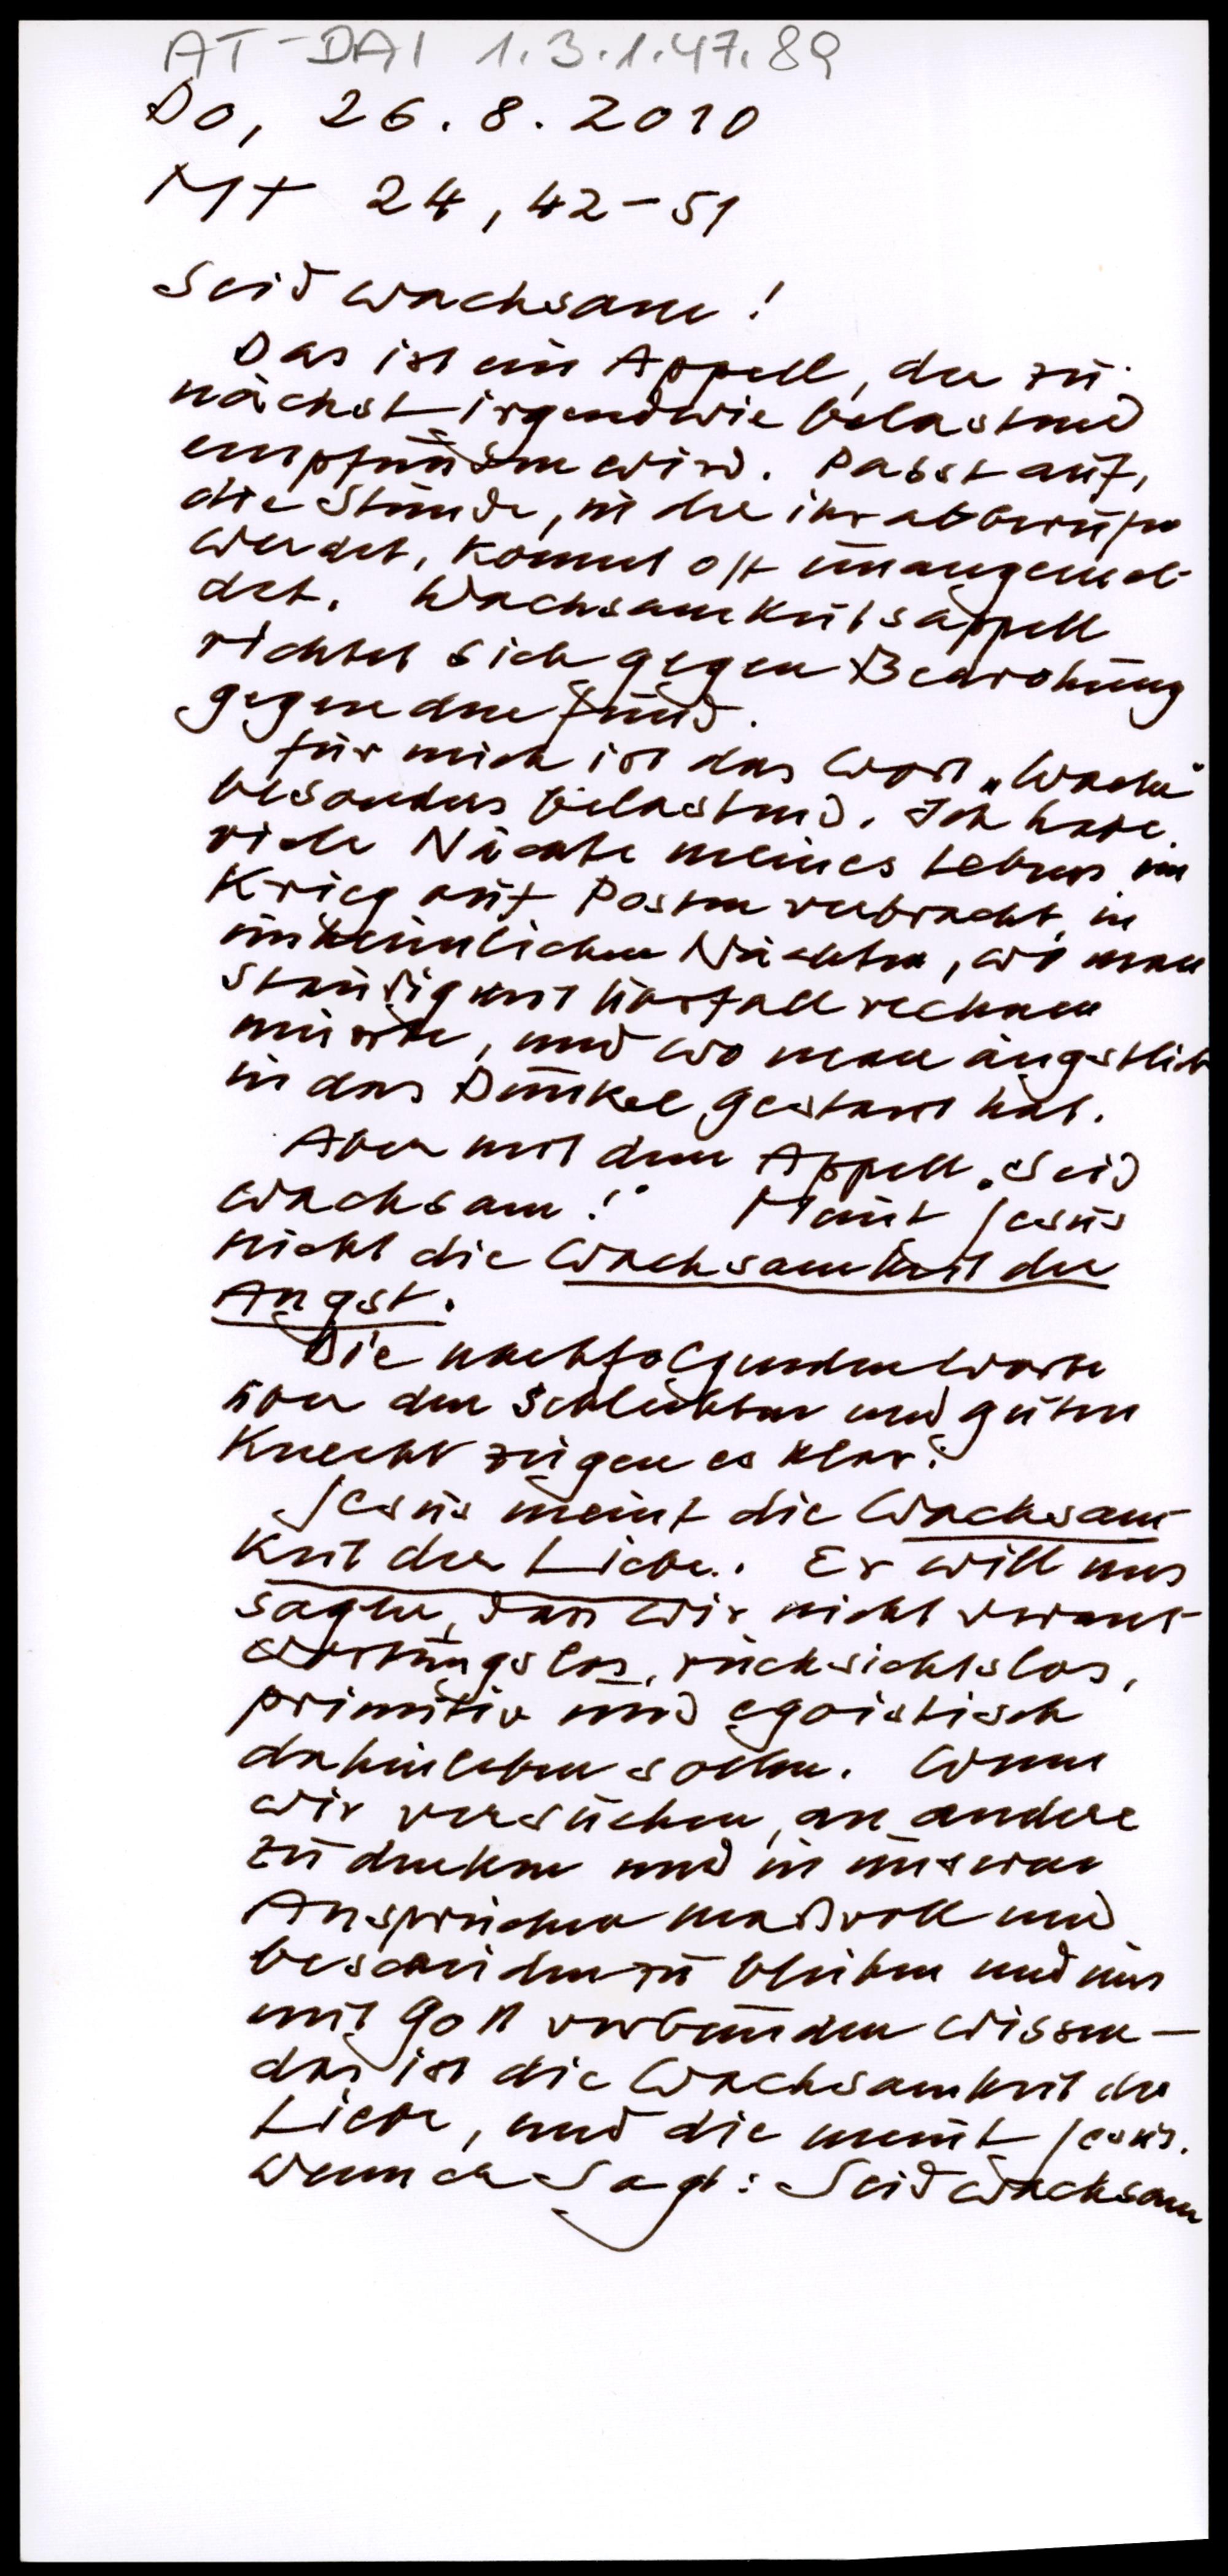 AT-DAI 1.3.1.47.89
Do, 26.8.2010
Mt 24, 42-51
Seid wachsam!
Das ist ein Appell, der zu-
nächst irgendwie belastend
empfunden wird. Passt auf,
die Stunde, in der ihr abberufen
werdet, kommt oft unangemel-
det. Wachsamkeitsappell
richtet sich gegen Bedrohung
gegen den Feind.
Für mich ist das Wort „Wache"
besonders belastend. Ich habe
viele Nächte meines Lebens im
Krieg auf Posten verbracht, in
unheimlichen Nächten, wo man
ständig mit Überfall rechnen
musste, und wo man ängstlich
in das Dunkel gestarrt hat.
Aber mit dem Appell „Seid
wachsam!" Meint Jesus
nicht die Wachsamkeit der
Angst.
Die nachfolgenden Worte
von dem schlechten und guten
Knecht zeigen es klar:
Jesus meint die Wachsam-
keit der Liebe. Er will uns
sagen, dass wir nicht verant-
wortungslos, rücksichtslos,
primitiv und egoistisch
dahinleben sollen. Wenn
wir versuchen, an andere
zu denken und in unseren
Ansprüchen maßvoll und
bescheiden zu bleiben und uns
mit Gott verbunden wissen –
das ist die Wachsamkeit der
Liebe, und die meint Jesus,
wenn er sagt: Seid wachsam